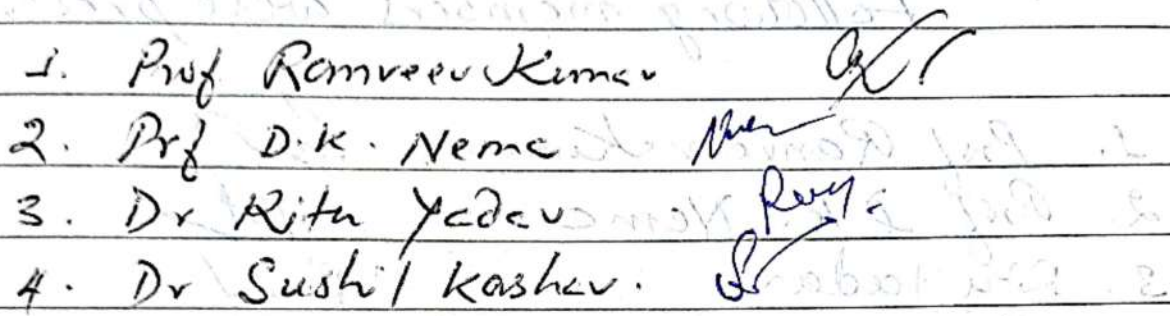 1. Prof Ramveer Kumar
2. Prf D.K. Nema
3. Dr Ritu Yadav
4. Dr Sushil Kashav.